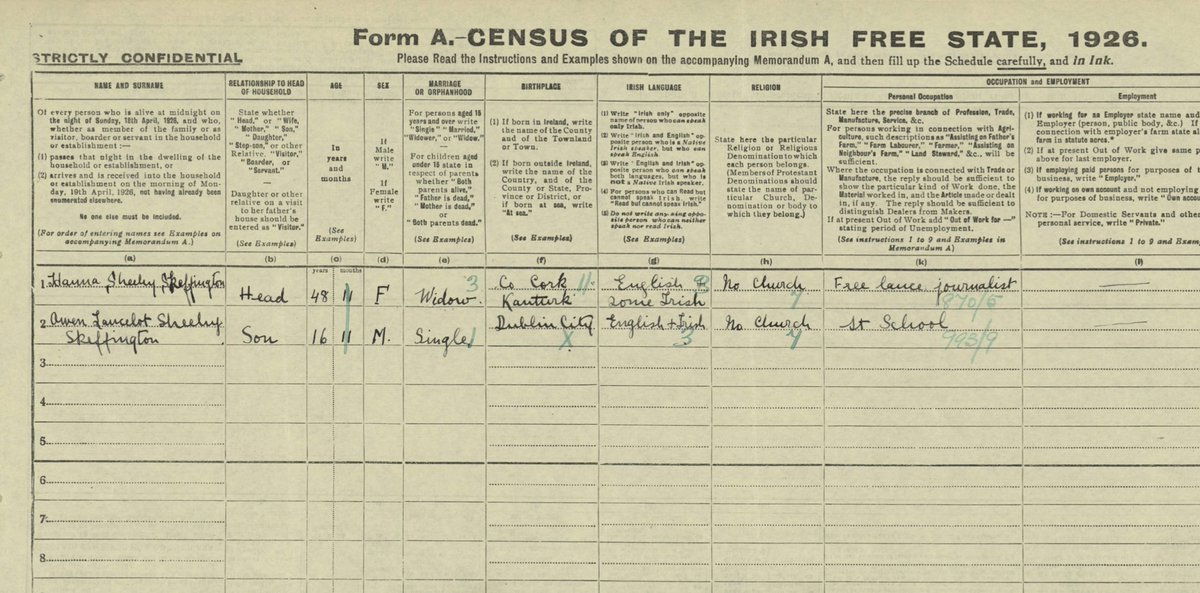 Form A.-CENSUS OF THE IRISH FREE STATE, 1926.
STRICTLY CONFIDENTIAL
Please Read the Instructions and Examples shown on the accompanying Memorandum A, and then fill up the Schedule carefully, and In Ink.
NAME AND SURNAME
Of every person who is alive at midnight on
the night of Sunday, 18th April, 1926, and who,
whether as member of the family or as
visitor, boarder or servant in the household
or establishment :—
(1) passes that night in the dwelling of the
household or establishment, or
(2) arrives and is received into the household
or establishment on the morning of Mon-
day, 19th April, 1926, not having already been
enumerated elsewhere.
No one else must be included.
(For order of entering names see Examples on
accompanying Memorandum A.)
(a)
RELATIONSHIP TO HEAD
OF HOUSEHOLD
State whether
"Head," or "Wife,
"Mother," "Son,"
"Daughter,"
"Step-son," or other
Relative, "Visitor,"
"Boarder, or
"Servant."
Daughter or other
relative on a visit
to her father's
house should be
entered as "Visitor."
(See Examples)
(b)
AGE
In
years
and
months
(See
Examples)
(c)
years months
SEX
If
Male
write
"M."
If
Female
write
"F."
(d)
MARRIAGE
or ORPHANHOOD
For persons aged 15
years and over write
"Single" "Married,"
"Widower," or "Widow."
For children aged
under 15 state in
respect of parents
whether "Both
parents alive,"
"Father is dead,"
"Mother is dead,"
or
"Both parents dead."
(See Examples)
(e)
BIRTHPLACE
(1) If born in Ireland,
write the name of the
County and of the
Townland
or Town.
(2) If born outside Ireland,
write the name of the
Country, and of the
County or State, Pro-
vince or District, or
if born at sea, write
"At sea."
(See Examples)
(f)
IRISH LANGUAGE
(1) Write "Irish only" opposite
name of person who can speak
only Irish.
(2) Write "Irish and English" op-
posite person who is a Native
Irish speaker, but who can
speak English.
(3) Write "English and Irish"
opposite person who can speak
both languages, but who is
not a Native Irish speaker.
(4) For persons who can Read but
cannot speak Irish, write
"Read but cannot speak Irish."
(5) Do not write anything oppo-
site person who can neither
speak nor read Irish.
(g)
RELIGION
State here the particular
Religion or Religious
Denomination to which
each person belongs.
(Members of Protestant
Denominations should
state the name of par-
ticular Church, De-
nomination or body to
which they belong.)
(h)
OCCUPATION and EMPLOYMENT
Personal Occupation
State here the precise branch of Profession, Trade,
Manufacture, Service, &c.
For persons working in connection with Agri-
culture, such descriptions as "Assisting on Father's
Farm," "Farm Labourer," "Farmer," "Assisting on
Neighbour's Farm," "Land Steward," &c., will be
sufficient.
Where the occupation is connected with Trade or
Manufacture, the reply should be sufficient to
show the particular Kind of Work done, the
Material worked in, and the Article made or dealt
in, if any. The reply should be sufficient to
distinguish Dealers from Makers.
If at present Out of Work add "Out of Work for —"
stating period of Unemployment.
(See instructions 1 to 9 and Examples in
Memorandum A)
(k)
Employment
(1) If working for an Employer state name and
Employer (person, public body, &c.) If
connection with employer's farm state
farm in statute acres.
(2) If at present Out of Work give same
above for last employer.
(3) If employing paid persons for purposes of
business, write "Employer."
(4) If working on own account and not employing
for purposes of business, write "Own
NOTE :—For Domestic Servants and other
personal service, write "Private."
(See instructions 1 to 9 and
(l)
1. Hanna Sheehy Skeffington Head 48 11 F Widow. 3 Co Cork 11. English 3 No Church 7 Free lance journalist —
Kanturk some Irish 870/5
2 Owen Lancelot Sheehy Dublin City English + Irish No Church At School —
Skeffington Son 16 11 M. Single 1 X 3 7 993/9
3
4
5
6
7
8